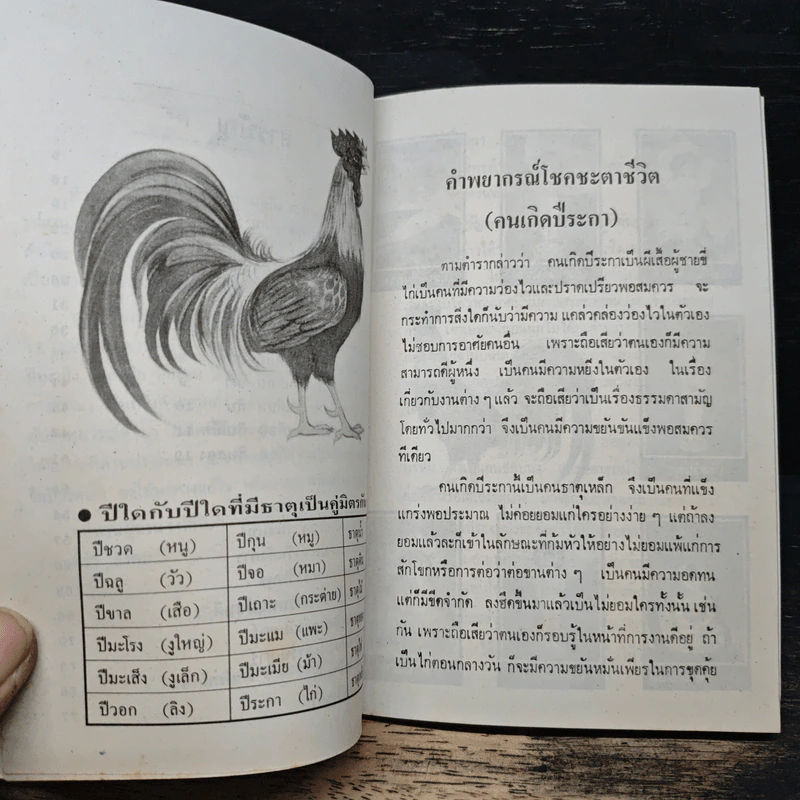 ● ปีใดกับปีใดที่มีธาตุเป็นคู่มิตรกัน
ปีชวด (หนู) ปีกุน (หมู) ธาตุน้ำ
ปีฉลู (วัว) ปีจอ (หมา)
ปีขาล (เสือ) ปีเถาะ (กระต่าย)
ปีมะโรง (งูใหญ่) ปีมะแม (แพะ)
ปีมะเส็ง (งูเล็ก) ปีมะเมีย (ม้า)
ปีวอก (ลิง) ปีระกา (ไก่)
คำพยากรณ์โชคชะตาชีวิต
(คนเกิดปีระกา)
ตามตำรากล่าวว่า คนเกิดปีระกาเป็นผีเสื้อผู้ชายขี่
ไก่เป็นคนที่มีความว่องไวและปราดเปรียวพอสมควร จะ
กระทำการสิ่งใดก็นับว่ามีความ แคล่วคล่องว่องไวในตัวเอง
ไม่ชอบการอาศัยคนอื่น เพราะถือเสียว่าตนเองก็มีความ
สามารถดีผู้หนึ่ง เป็นคนมีความหยิ่งในตัวเอง ในเรื่อง
เกี่ยวกับงานต่าง ๆ แล้ว จะถือเสียว่าเป็นเรื่องธรรมดาสามัญ
โดยทั่วไปมากกว่า จึงเป็นคนมีความขยันขันแข็งพอสมควร
ทีเดียว
คนเกิดปีระกานี้เป็นคนธาตุเหล็ก จึงเป็นคนที่แข็ง
แกร่งพอประมาณ ไม่ค่อยยอมแก่ใครอย่างง่าย ๆ แต่ถ้าลง
ยอมแล้วละก็เข้าในลักษณะที่ก้มหัวให้อย่างไม่ยอมแพ้แก่การ
สักโขกหรือการต่อว่าต่อขานต่าง ๆ เป็นคนมีความอดทน
แต่ก็มีขีดจำกัด ลงฮึดขึ้นมาแล้วเป็นไม่ยอมใครทั้งนั้น เช่น
กัน เพราะถือเสียว่าตนเองก็รอบรู้ในหน้าที่การงานดีอยู่ ถ้า
เป็นไก่ตอนกลางวัน ก็จะมีความขยันหมั่นเพียรในการขุดคุ้ย